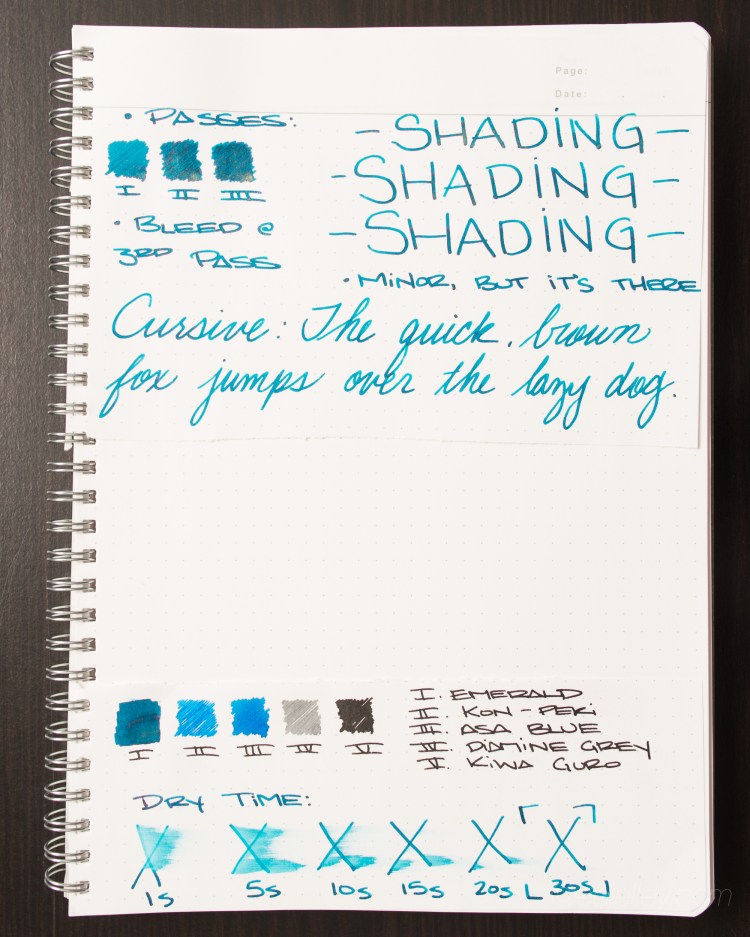 Page:
Date:
• PASSES:
I II III
• BLEED @
3RD PASS
– SHADiNG –
– SHADiNG –
– SHADiNG –
• MiNOR, BUT iT'S THERE
Cursive: The quick, brown
fox jumps over the lazy dog.
I II III IV V
I. EMERALD
II. KON-PEKI
III. ASA BLUE
IV. DIAMINE GREY
V. KIWA GURO
DRY TiME:
1s 5s 10s 15s 20s 30s